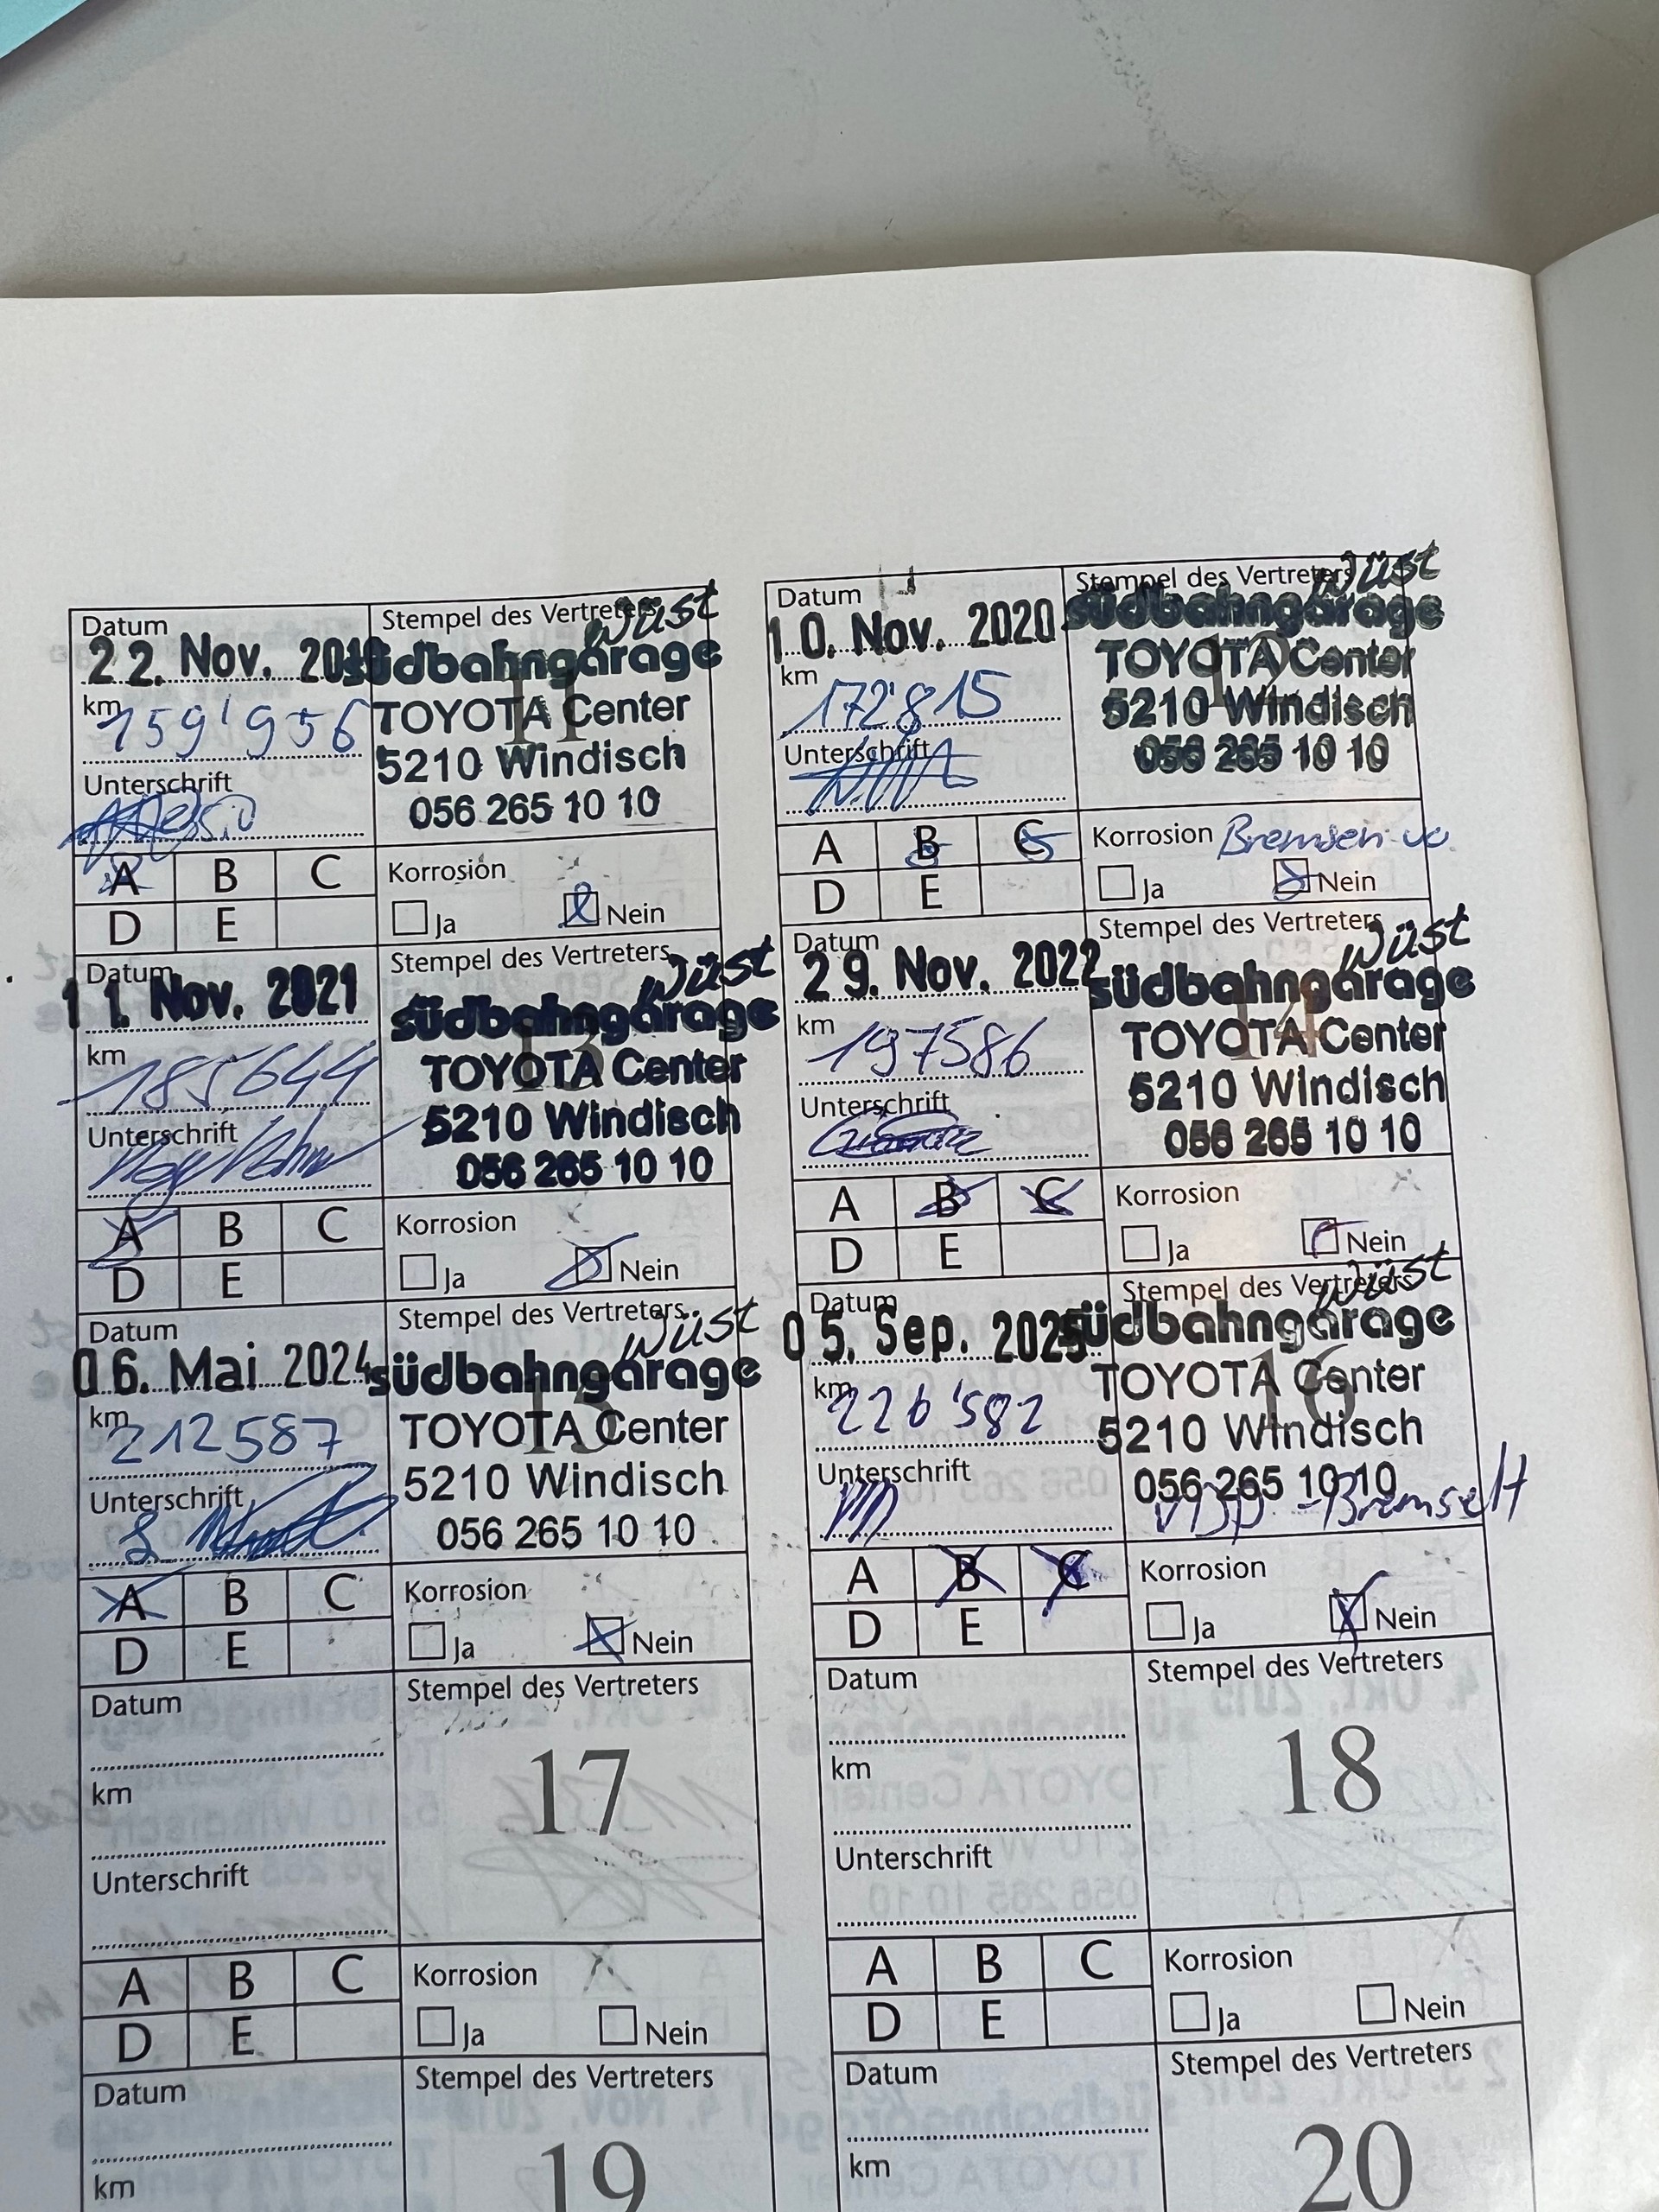 Datum
22. Nov. 201
km
159'956
Unterschrift
Stempel des Vertreters
Wüst
südbahngarage
11
TOYOTA Center
5210 Windisch
056 265 10 10
A B C
D E
Korrosion
Ja Nein
Datum
10. Nov. 2020
km
172'815
Unterschrift
Stempel des Vertreters
Wüst
südbahngarage
12
TOYOTA Center
5210 Windisch
056 265 10 10
A B C
D E
Korrosion Bremsen
Ja Nein
Datum
11. Nov. 2021
km
185644
Unterschrift
Stempel des Vertreters
Wüst
südbahngarage
13
TOYOTA Center
5210 Windisch
056 265 10 10
A B C
D E
Korrosion
Ja Nein
Datum
29. Nov. 2022
km
197586
Unterschrift
Stempel des Vertreters
Wüst
südbahngarage
14
TOYOTA Center
5210 Windisch
056 265 10 10
A B C
D E
Korrosion
Ja Nein
Datum
06. Mai 2024
km
212587
Unterschrift
Stempel des Vertreters
Wüst
südbahngarage
15
TOYOTA Center
5210 Windisch
056 265 10 10
A B C
D E
Korrosion
Ja Nein
Datum
05. Sep. 2025
km
226'582
Unterschrift
Stempel des Vertreters
Wüst
südbahngarage
16
TOYOTA Center
5210 Windisch
056 265 10 10
A B C
D E
Korrosion
Ja Nein
Datum
km
Unterschrift
Stempel des Vertreters
17
A B C
D E
Korrosion
Ja Nein
Datum
km
Unterschrift
Stempel des Vertreters
18
A B C
D E
Korrosion
Ja Nein
Datum
km
Stempel des Vertreters
19
Datum
km
Stempel des Vertreters
20